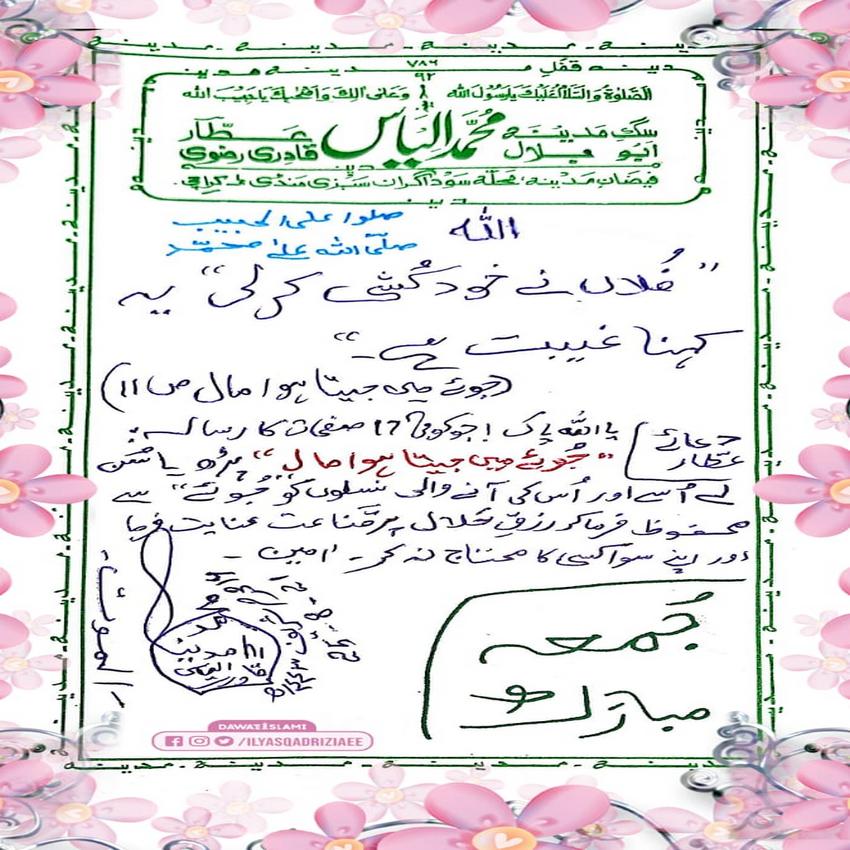 مدینہ - مدینہ - مدینہ - مدینہ - مدینہ
مدینہ قفلِ مدینہ مدینہ
۷۸۶
۹۲
الصّلوٰۃ والسّلام علیک یا رسول اللہ وعلیٰ اٰلک واصحٰبک یا حبیب اللہ
سگِ مدینہ محمد الیاس عطّار
ابو بلال قادری رضوی
فیضانِ مدینہ، محلّہ سوداگران سبزی منڈی کراچی۔
مدینہ
اللہ
صلوا علی الحبیب
صلّی اللہ علیٰ محمّد
"فُلاں نے خودکُشی کر لی" یہ
کہنا غیبت ہے۔"
(جوئے میں جیتا ہوا مال ص ۱۱)
دعائے عطّار
یا اللہ پاک! جو کوئی 17 صفحات کا رسالہ:
"جُوئے میں جیتا ہوا مال" پڑھ یا سُن
لے اُسے اور اُس کی آنے والی نسلوں کو "جُوئے" سے
محفوظ فرما کر رزقِ حلال پر قناعت عنایت فرما
اور اپنے سوا کسی کا محتاج نہ کر۔ اٰمین۔
جُمعہ
مبارَک ہو
DAWATEISLAMI
/ILYASQADRIZIAEE